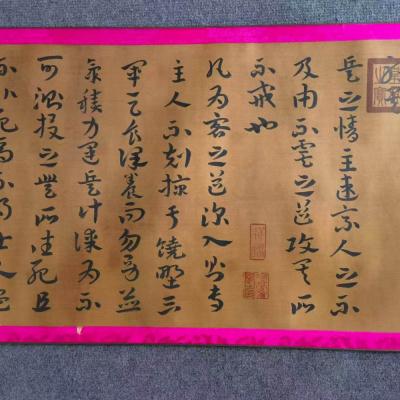 兵之情主速乘人之不
及由不虞之道攻其所
不戒也
凡為客之道深入則專
主人不克掠于饒野三
軍足食謹養而勿勞並
氣積力運兵計謀為不
可測投之無所往死且
不北死焉不得士人盡